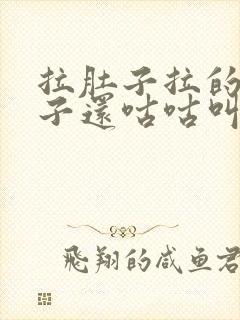 拉肚子拉的
子還咕咕叫
飛翔的咸鱼君